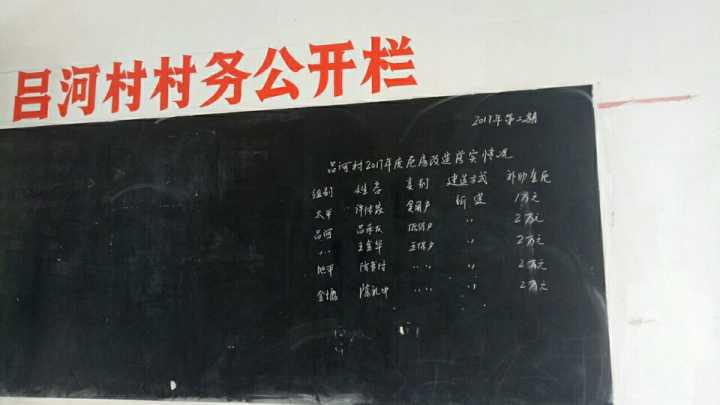 吕河村村务公开栏
2017年第二期
吕河村2017年度危房改造落实情况
组别 姓名 类别 建造方式 补助金额
贫困户 新建 1万元
吕河 低保户 〃 2万元
〃 王金华 五保户 〃 2万元
〃 〃 2万元
〃 〃 2万元